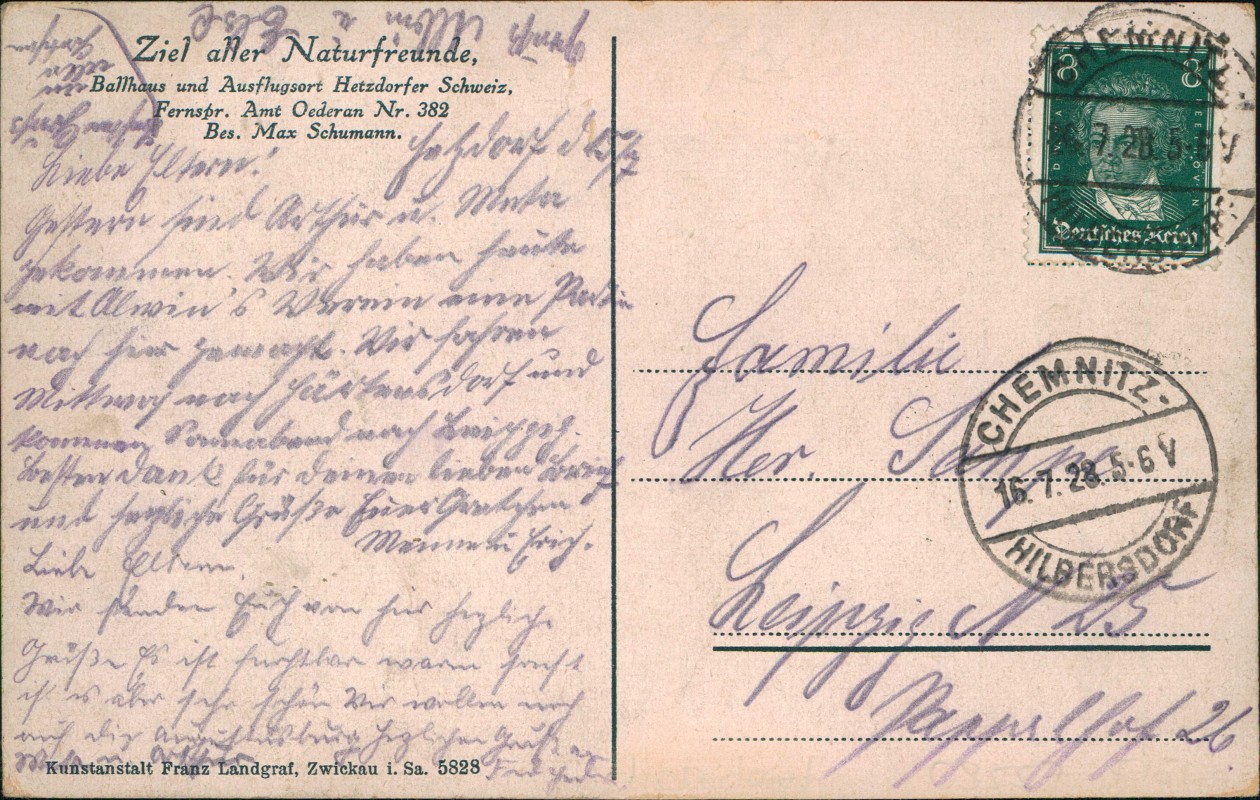 Ziel aller Naturfreunde,
Ballhaus und Ausflugsort Hetzdorfer Schweiz,
Fernspr. Amt Oederan Nr. 382
Bes. Max Schumann.
Hetzdorf d. 15/7
Liebe Eltern!
Gestern sind Arthur u. Meta
gekommen. Wir haben heute
mit Alwin's Verein eine Partie
nach hier gemacht. Wir fahren
Mittwoch nach Härtensdorf und
kommen Sonnabend nach Leipzig.
Besten Dank für deinen lieben Brief
und herzliche Grüße Euer Gretchen
Menne u Erich.
Liebe Eltern.
Wir senden Euch von hier herzliche
Grüße Es ist furchtbar warm sonst
ist es aber sehr schön Wir wollen noch
auf die Augustusburg herzlichen Gruß
Alwin u Else
Kunstanstalt Franz Landgraf, Zwickau i. Sa. 5828
8 8
BEETHOVEN
Deutsches Reich
CHEMNITZ-
16.7.28.5-6V
HILBERSDORF
CHEMNITZ-
16.7.28.5-6V
HILBERSDORF
Familie
Her.
Leipzig N 25
Pappelhof 26.